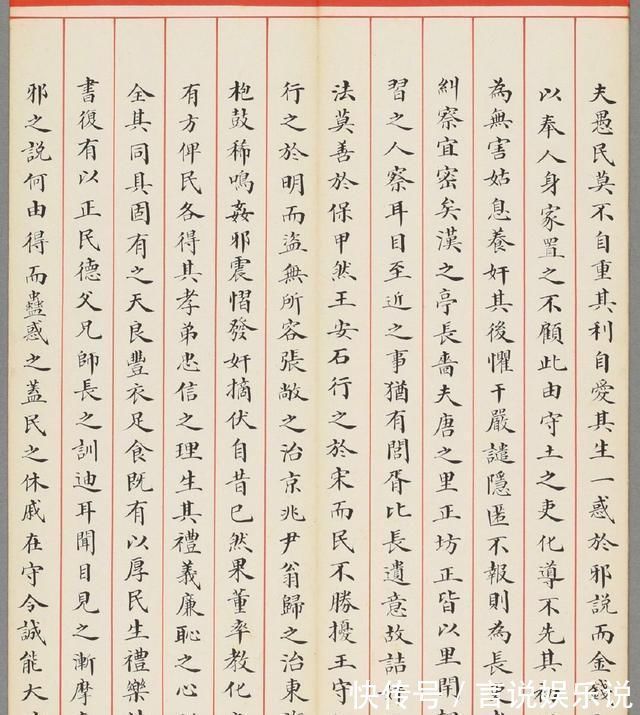 夫愚民莫不自重其利自愛其生一惑於邪說而金錢
以奉人身家置之不顧此由守土之吏化導不先其初
為無害姑息養奸其後懼干嚴譴隱匿不報則為長吏
糾察宜密矣漢之亭長嗇夫唐之里正坊正皆以里閈
習之人察耳目至近之事猶有閭胥比長遺意故詰
法莫善於保甲然王安石行之於宋而民不勝擾王守
行之於明而盜無所容張敞之治京兆尹翁歸之治東
枹鼓稀鳴姦邪震慴發奸摘伏自昔已然果董率教化
有方俾民各得其孝弟忠信之理生其禮義廉恥之心
全其同具固有之天良豐衣足食既有以厚民生禮樂
書復有以正民德父兄師長之訓迪耳聞目見之漸摩
邪之說何由得而蠱惑之蓋民之休戚在守令誠能大
快传号/言说娱乐说